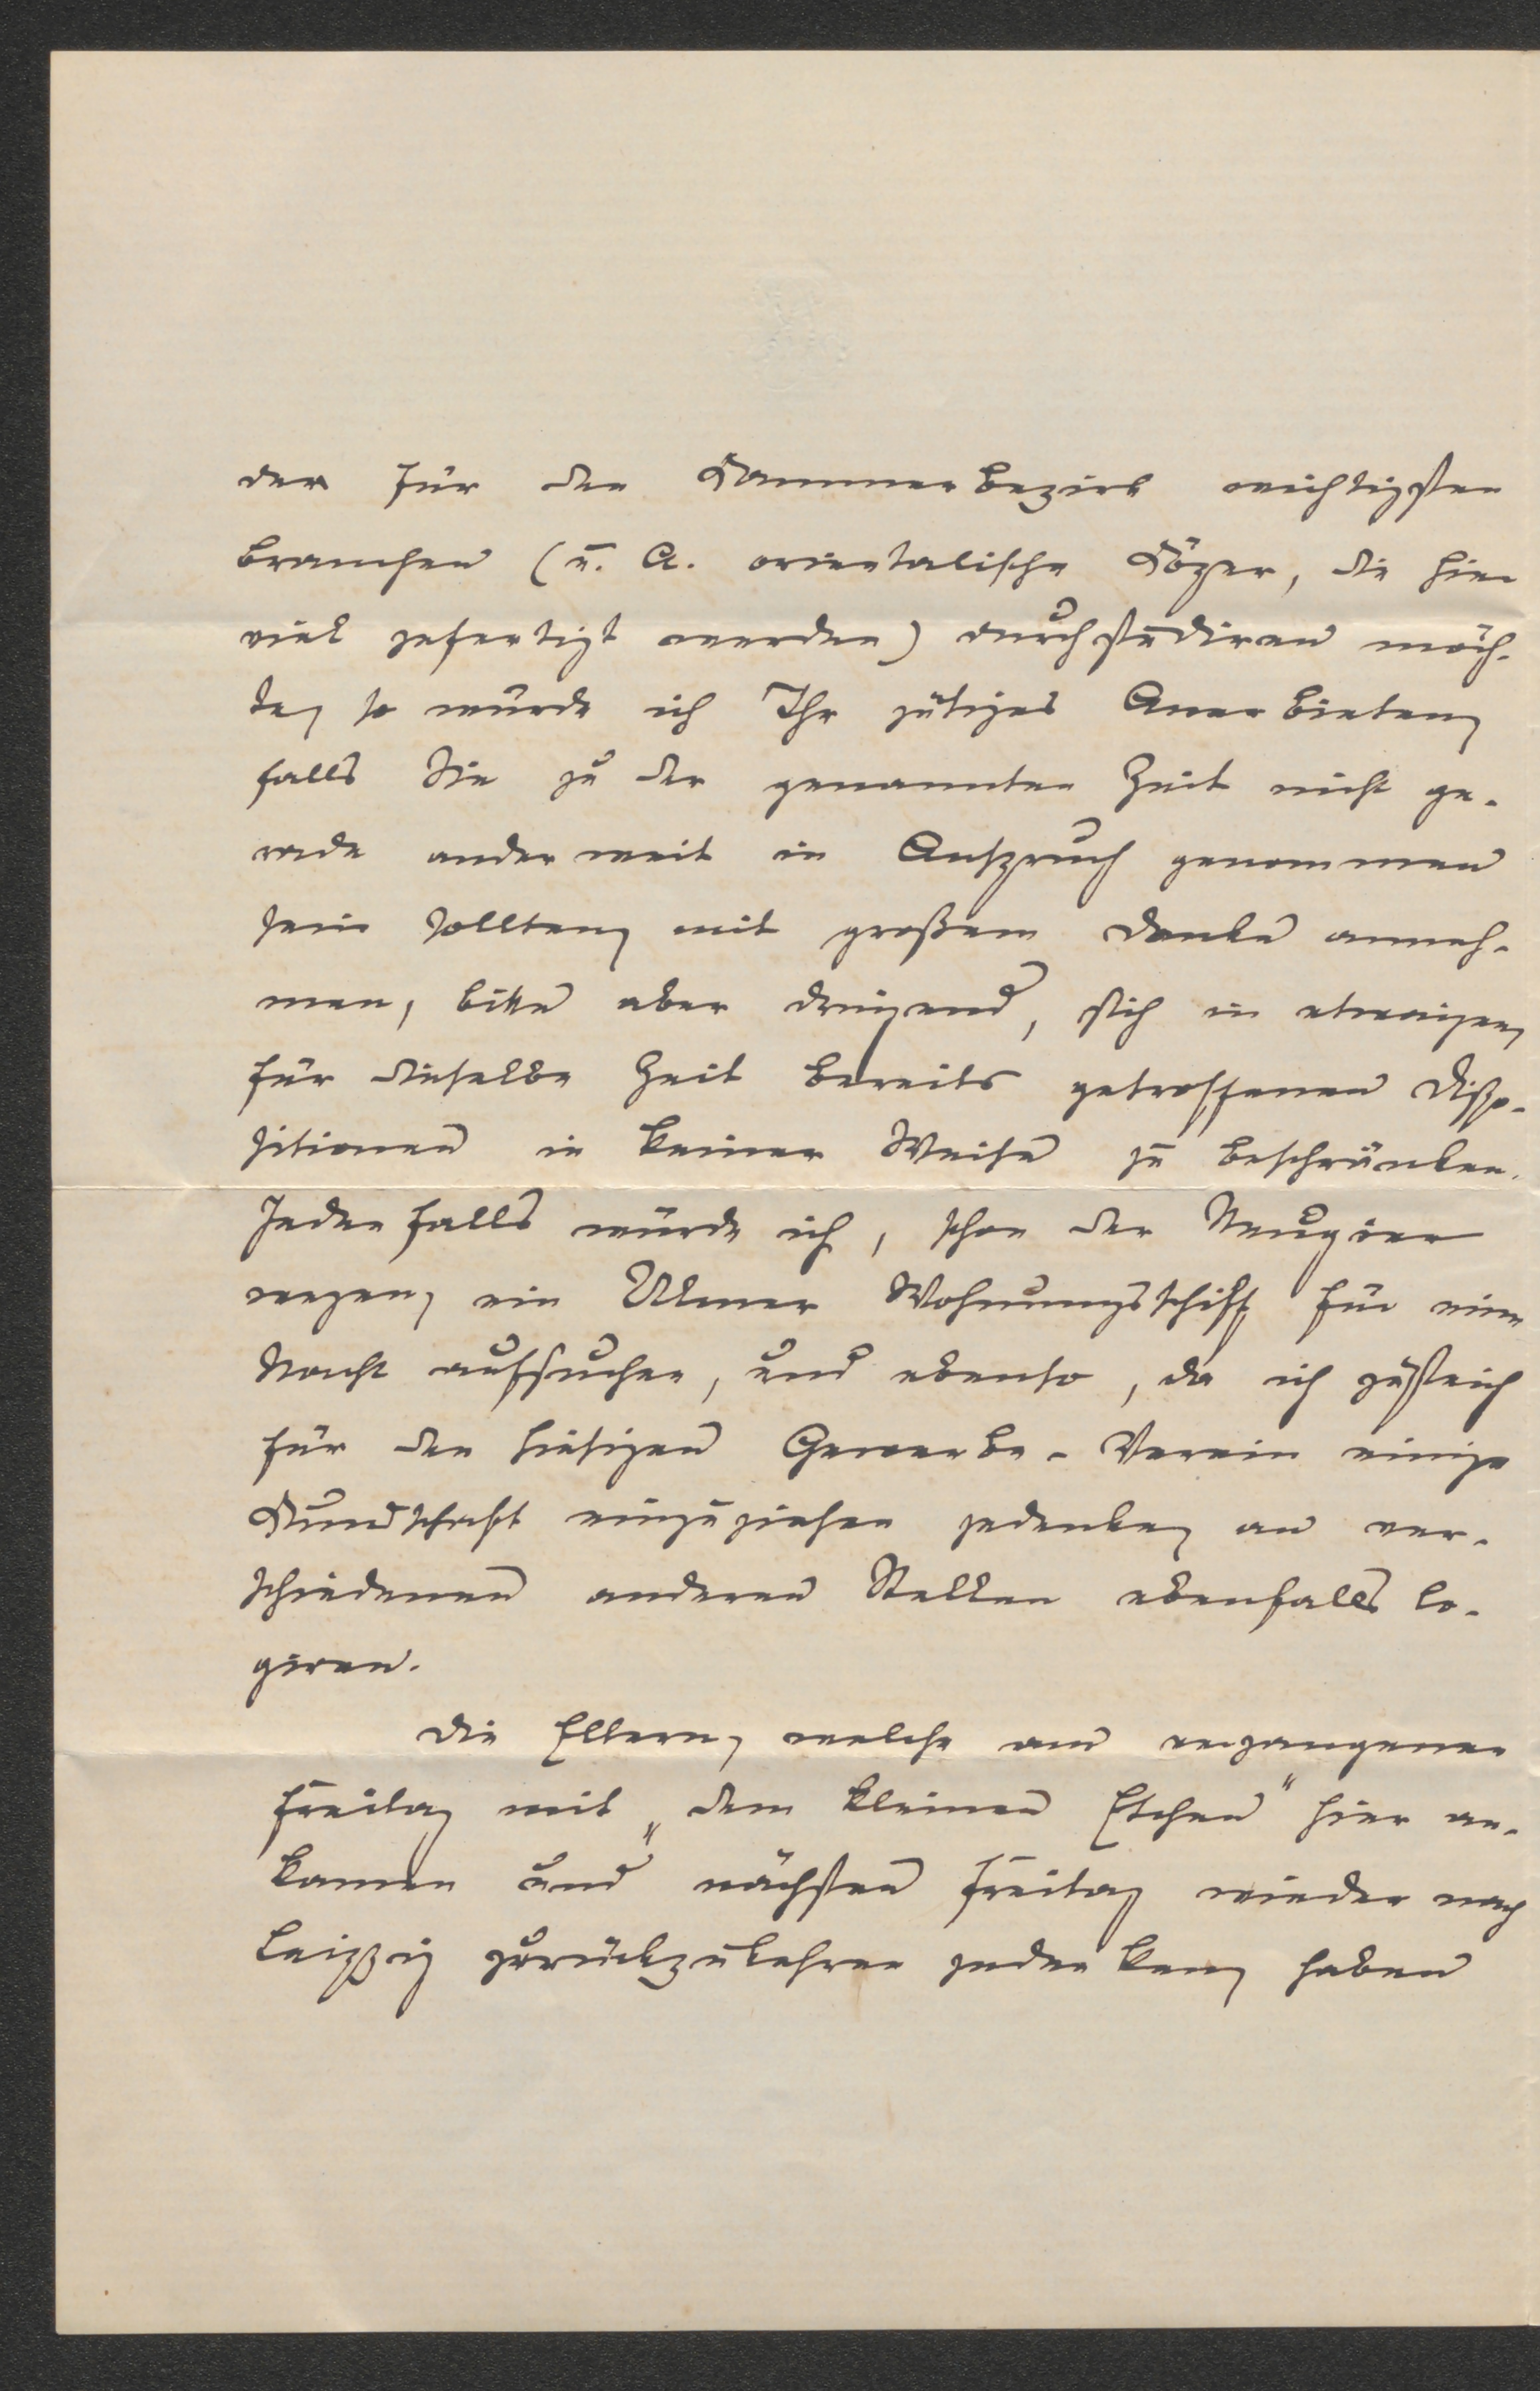 der für den Kammerbezirk wichtigsten
Branchen (u. A. orientalische Götzen, die hier
viel gefertigt werden) durchstudiren möch-
te, so würde ich Ihr gütiges Anerbieten,
falls Sie zu der genannten Zeit nicht ge-
rade anderweit in Anspruch genommen
sein sollten, mit großem Danke anneh-
men, bitte aber dringend, sich in etwaigen,
für dieselbe Zeit bereits getroffenen Dispo-
sitionen in keiner Weise zu beschränken.
Jedenfalls würde ich, schon der Neugier
wegen, ein Ulmer Wohnungsschiff für eine
Nacht aufsuchen, und ebenso, da ich zugleich
für den hiesigen Gewerbe-Verein einige
Kundschaft einzuziehen gedenke, an ver-
schiedenen anderen Stellen ebenfalls lo-
giren.
Die Eltern, welche am vergangenen
Freitag mit „dem kleinen Etchen" hier an-
kamen und nächsten Freitag wieder nach
Leipzig zurückzukehren gedenken, haben